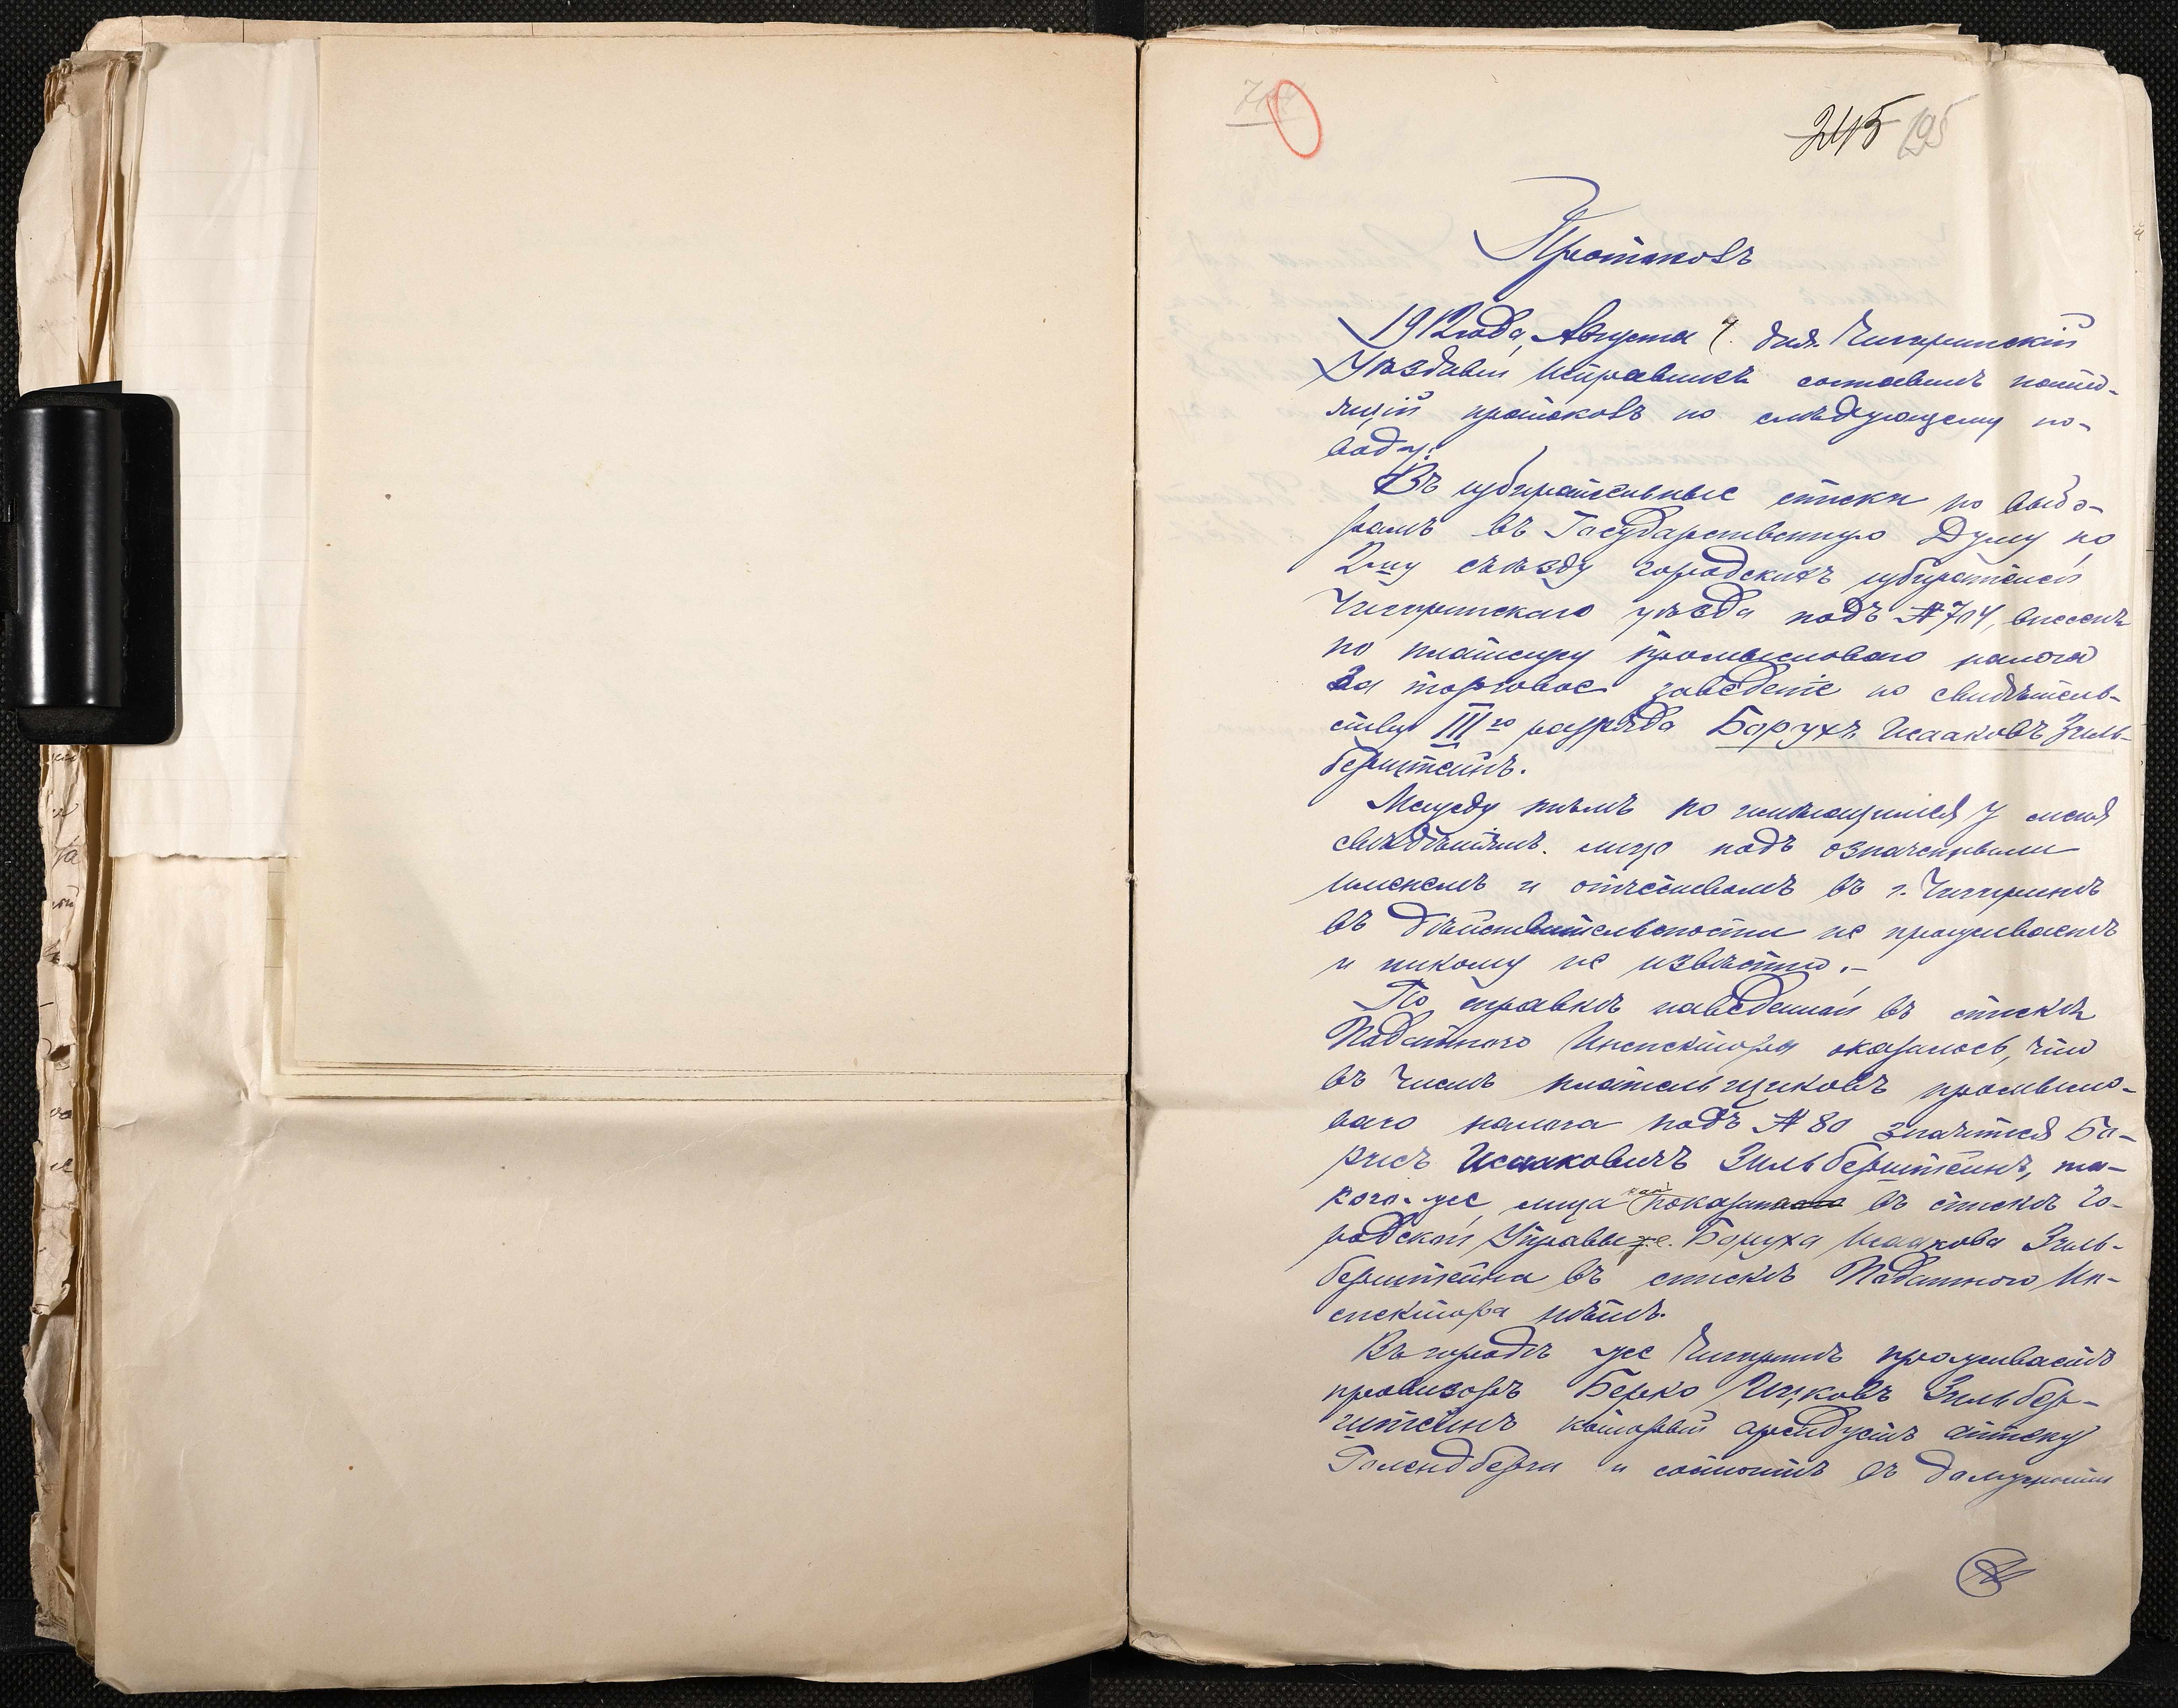 245 195
Протоколъ
1912 года, Августа 7 дня. Чигиринскій
Уѣздный Исправникъ составилъ настоя-
щій протоколъ по слѣдующему по-
воду:
Въ избирательные списки по выбо-
рамъ въ Государственную Думу по
2му съѣзду городскихъ избирателей
Чигиринскаго уѣзда подъ № 704, внесенъ
по платежу промысловаго налога
за торговое заведеніе по свидѣтель-
ству III го разряда Борухъ Исааковъ Зиль-
берштейнъ.
Между тѣмъ по имѣющимся у меня
свѣдѣніямъ лицо подъ означенными
именемъ и отчествомъ въ г. Чигиринѣ
въ дѣйствительности не проживаетъ
и никому не извѣстно.-
По справкѣ наведенной въ спискѣ
Податного Инспектора оказалось, что
въ числѣ плательщиковъ промысло-
ваго налога подъ № 80 значится Бо-
рисъ Исааковичъ Зильберштейнъ, та-
кого-же лица какъ показано въ спискѣ Го-
родской Управы т.е. Боруха Исаакова Зиль-
берштейна въ спискѣ Податного Ин-
спектора нѣтъ.
Въ городѣ же Чигиринѣ проживаетъ
провизоръ Берко Ицковъ Зильбер-
штейнъ который арендуетъ аптеку
Голендберга и состоитъ въ должности